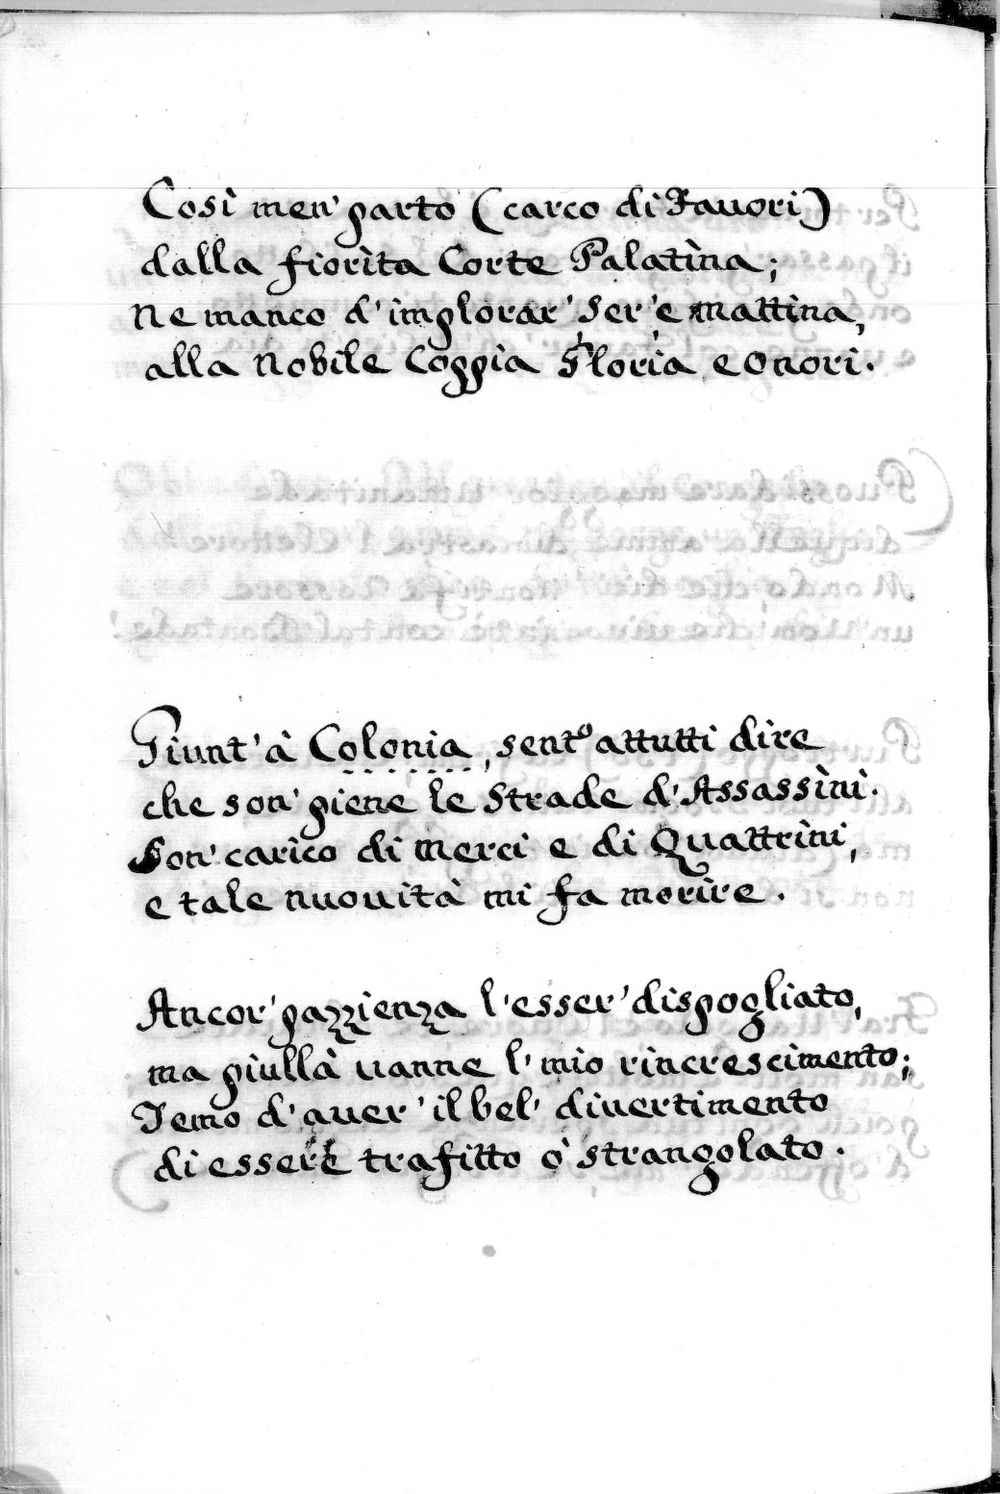 Così men' parto (carco di Fauori)
dalla fiorìta Corte Palatìna;
Ne manco d'implorar' Ser' e mattìna,
alla Nobile Coppìa Gloria e Onori.
Giunt' à Colonia, sent.º attutti dire
che son' piene le Strade d'Assassìnì.
Son' carìco di merci e di Quattrìni,
e tale nuouità mi fa morìre.
Ancor' pazzienza l'esser' dispogliato,
ma piullà uanne l' mio rincrescimento;
Temo d'auer' il bel' diuertimento
di essere trafitto ò strangolato.